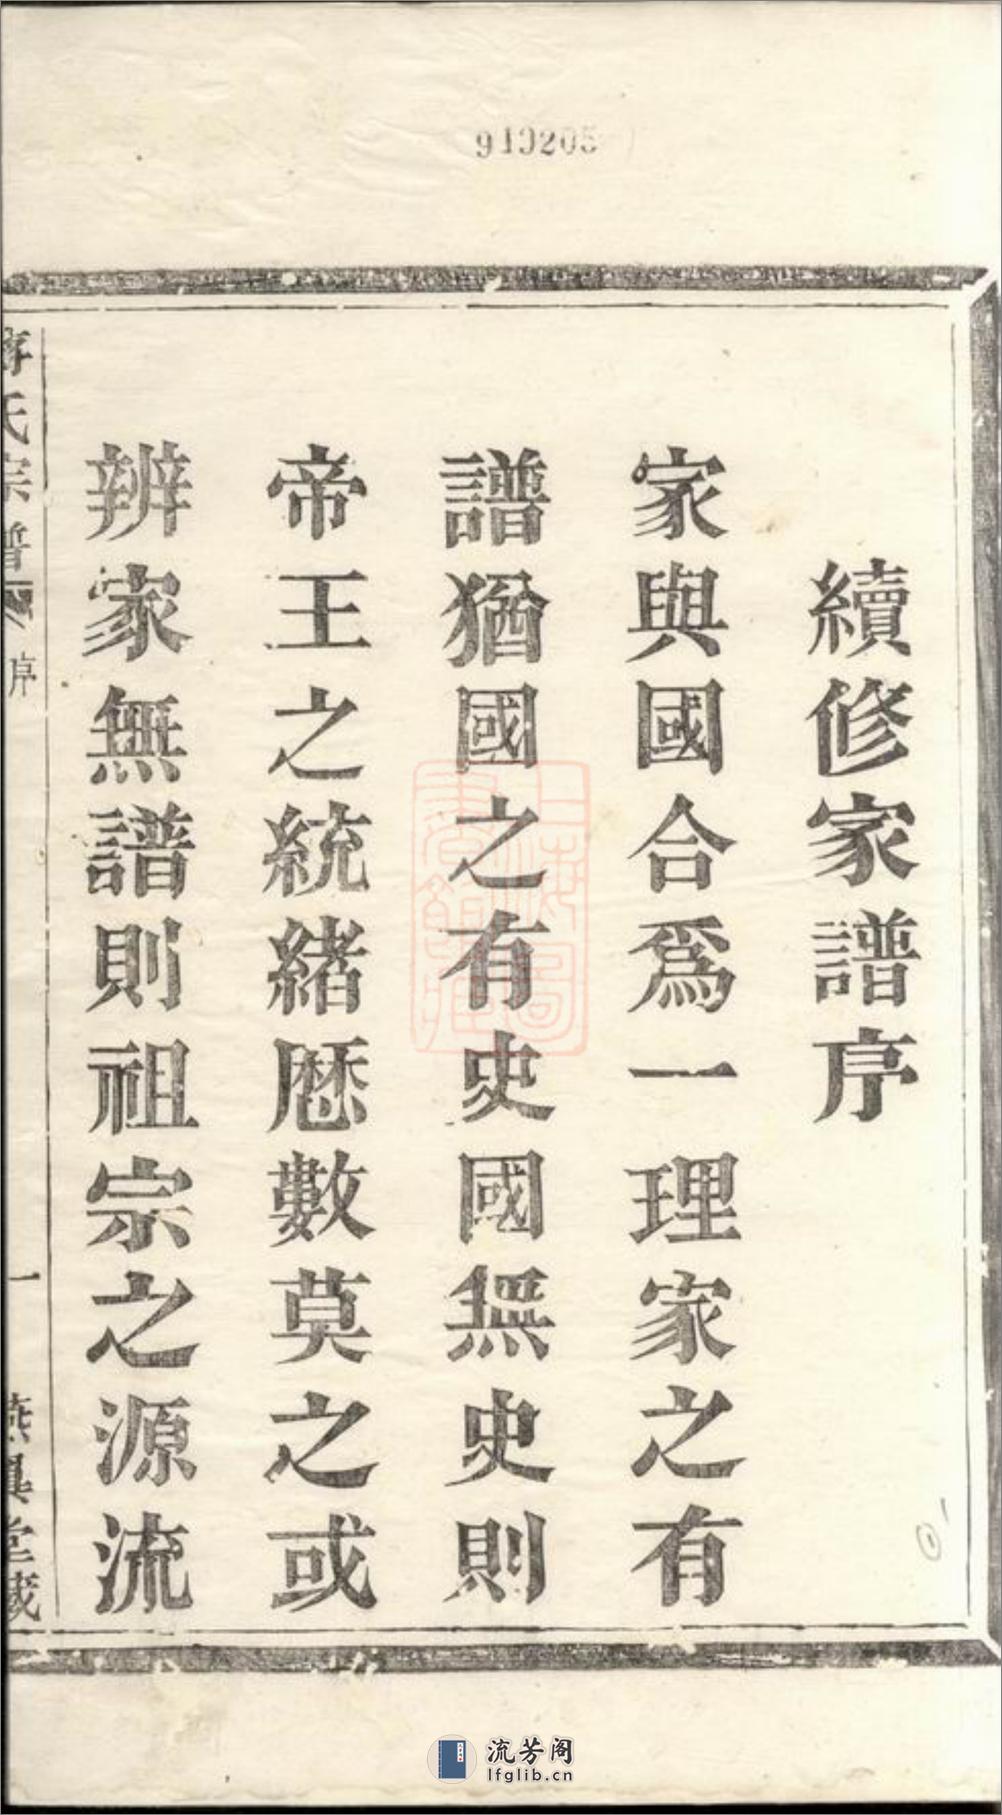 910205
續修家譜序
家與國合爲一理家之有
譜猶國之有史國無史則
帝王之統緒歷數莫之或
辨家無譜則祖宗之源流
氏宗譜
序
一
堂藏
上海圖書館藏
流芳阁
lfglib.cn